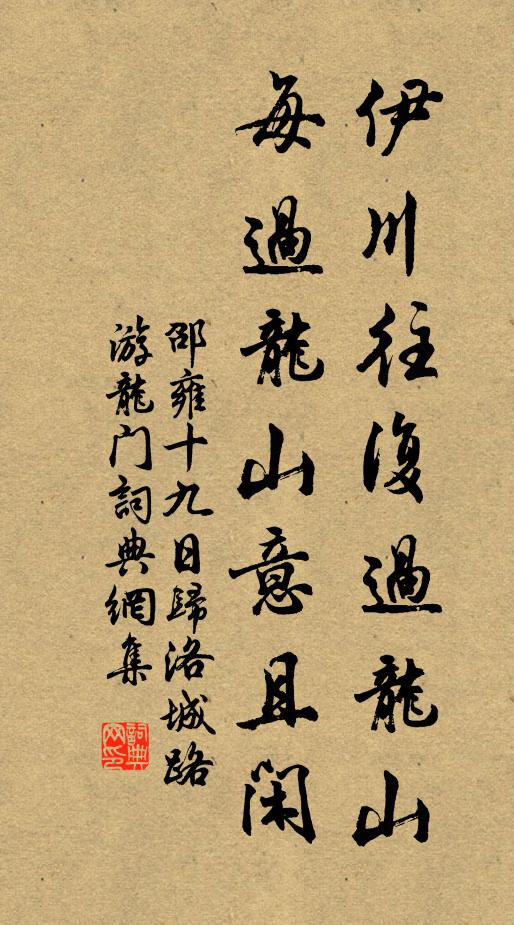 伊川往復過龍山
每過龍山意且閑
邵雍十九日歸洛城路
游龍門詞典網集
詞典
网印